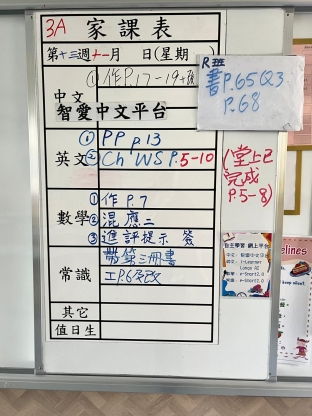 3A 家課表
第十三週十一月 日(星期 )
中文
① 作P.17-19+改
智愛中文平台
R班
書P.65Q3
P.68
英文
① PP p.13
② Ch WS P.5-10
(堂上已
完成
P.5-8)
數學
① 作 P.7
② 混應二
③ 進評提示 簽
常識
帶第三冊書
工P.6及改
其它
值日生
自主學習 網上平台